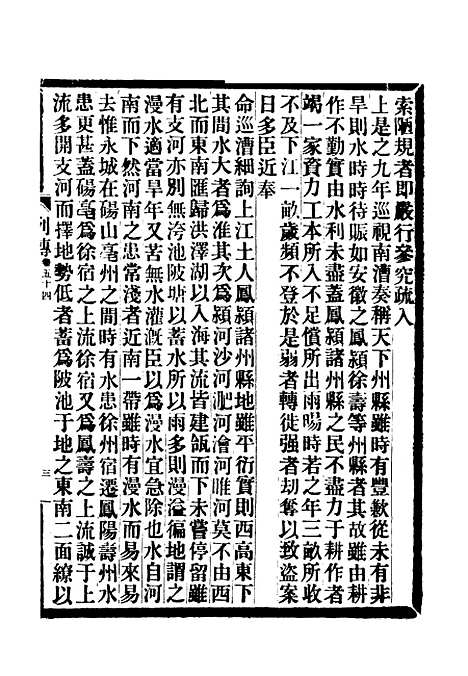 索陋規者即嚴行參究疏入
上是之九年巡視南漕奏稱天下州縣雖時有豐歉從未有非
旱則水時時待賑如安徽之鳳潁徐壽等州縣者其故雖由耕
作不勤實由水利未盡蓋鳳潁諸州縣之民不盡力于耕作者
竭一家資力工本所入不足償所出雨暘時若之年三畝所收
不及下江一畝歲頻不登於是弱者轉徙强者刦奪以致盜案
日多臣近奉
命巡漕細詢上江土人鳳潁諸州縣地雖平衍質則西高東下
其間水大者為淮其次為潁河沙河淝河澮河睢河莫不由西
北而東南匯歸洪澤湖以入海其流皆建瓴而下未嘗停留雖
有支河亦別無洿池陂塘以蓄水所以雨多則漫溢徧地謂之
漫水適當旱年又苦無水灌溉臣以為漫水宜急除也水自河
南而下然河南之患常淺者近南一帶雖時有漫水而易來易
去惟永城在碭山亳州之間時有水患徐州宿遷鳳陽壽州水
患更甚蓋碭亳為徐宿之上流徐宿又為鳳壽之上流誠于上
流多開支河而擇地勢低者蓄為陂池于地之東南二面繚以
列傳 卷五十四
三